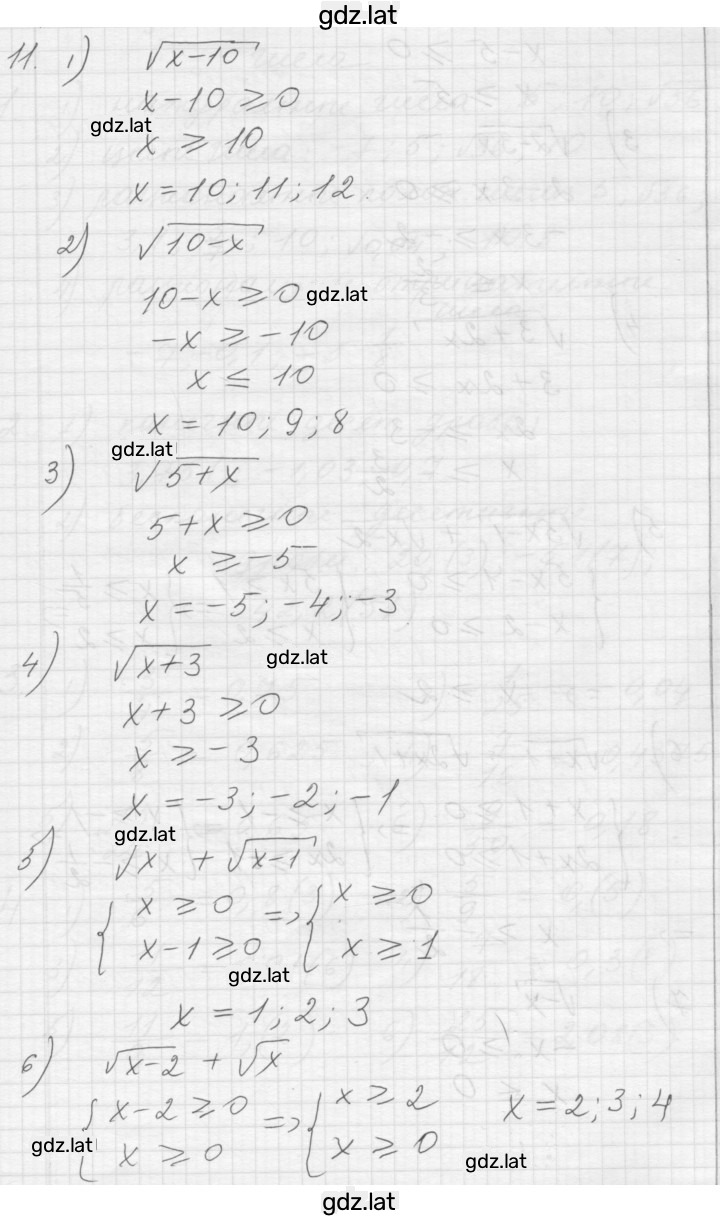 gdz.lat
11. 1) √x-10
x-10 ⩾ 0
gdz.lat
x ⩾ 10
x = 10; 11; 12.
2) √10-x
10-x ⩾ 0 gdz.lat
-x ⩾ -10
x ≤ 10
x = 10; 9; 8
gdz.lat
3) √5+x
5+x ⩾ 0
x ⩾ -5
x = -5; -4; -3
4) √x+3 gdz.lat
x+3 ⩾ 0
x ⩾ -3
x = -3; -2; -1
gdz.lat
5) √x + √x-1
{ x ⩾ 0 => { x ⩾ 0
x-1 ⩾ 0 x ⩾ 1
gdz.lat
x = 1; 2; 3
6) √x-2 + √x
{ x-2 ⩾ 0 => { x ⩾ 2 x = 2; 3; 4
gdz.lat x ⩾ 0 x ⩾ 0
gdz.lat
gdz.lat